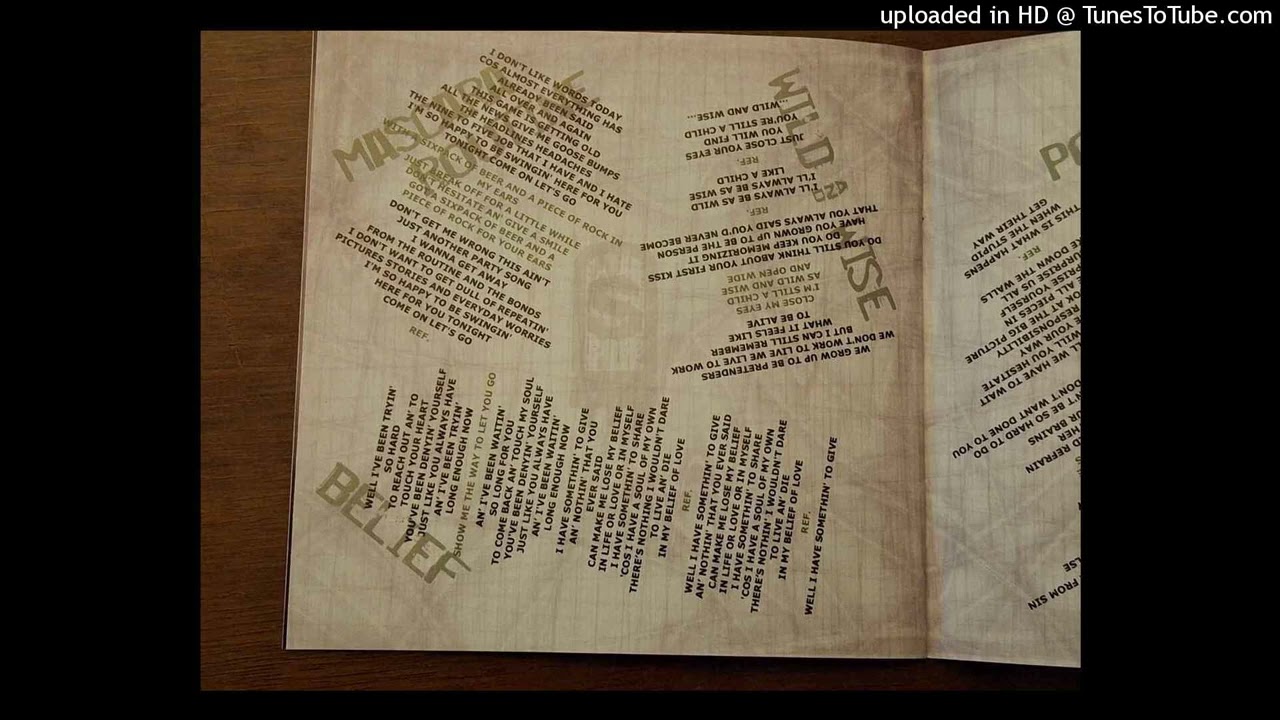 uploaded in HD @ TunesToTube.com
I DON'T LIKE WORDS TODAY
COS ALMOST EVERYTHING HAS
ALREADY BEEN SAID
ALL OVER AND AGAIN
THIS GAME IS GETTING OLD
ALL THE NEWS GIVE ME GOOSE BUMPS
THE HEADLINES HEADACHES
THE NINE TO FIVE JOB THAT I HAVE AND I HATE
I'M SO HAPPY TO BE SWINGIN' HERE FOR YOU
TONIGHT COME ON LET'S GO
WITH A SIXPACK OF BEER AND A PIECE OF ROCK IN
MY EARS
JUST BREAK OFF FOR A LITTLE WHILE
DON'T HESITATE AN' GIVE A SMILE
GOT A SIXPACK OF BEER AND A
PIECE OF ROCK FOR YOUR EARS
DON'T GET ME WRONG THIS AIN'T
JUST ANOTHER PARTY SONG
I WANNA GET AWAY
FROM THE ROUTINE AND THE BONDS
I DON'T WANT TO GET DULL OF REPEATIN'
PICTURES STORIES AND EVERYDAY WORRIES
I'M SO HAPPY TO BE SWINGIN'
HERE FOR YOU TONIGHT
COME ON LET'S GO
REF.
WILD AND WISE
WE GROW UP TO BE PRETENDERS
WE DON'T WORK TO LIVE WE LIVE TO WORK
BUT I CAN STILL REMEMBER
WHAT IT FEELS LIKE
TO BE ALIVE
CLOSE MY EYES
I'M STILL A CHILD
AS WILD AND WISE
AND OPEN WIDE
DO YOU STILL THINK ABOUT YOUR FIRST KISS
DO YOU KEEP MEMORIZING IT
HAVE YOU GROWN UP TO BE THE PERSON
THAT YOU ALWAYS SAID YOU'D NEVER BECOME
REF.
I'LL ALWAYS BE AS WILD
I'LL ALWAYS BE AS WISE
LIKE A CHILD
REF.
JUST CLOSE YOUR EYES
YOU WILL FIND
YOU'RE STILL A CHILD
...WILD AND WISE...
BELIEF
WELL I'VE BEEN TRYIN'
SO HARD
TO REACH OUT AN' TO
TOUCH YOUR HEART
YOU'VE BEEN DENYIN' YOURSELF
JUST LIKE YOU ALWAYS HAVE
AN' I'VE BEEN TRYIN'
LONG ENOUGH NOW
SHOW ME THE WAY TO LET YOU GO
AN' I'VE BEEN WAITIN'
SO LONG FOR YOU
TO COME BACK AN' TOUCH MY SOUL
YOU'VE BEEN DENYIN' YOURSELF
JUST LIKE YOU ALWAYS HAVE
AN' I'VE BEEN WAITIN'
LONG ENOUGH NOW
I HAVE SOMETHIN' TO GIVE
AN' NOTHIN' THAT YOU
EVER SAID
CAN MAKE ME LOSE MY BELIEF
IN LIFE OR LOVE OR IN MYSELF
I HAVE SOMETHIN' TO SHARE
'COS I HAVE A SOUL OF MY OWN
THERE'S NOTHING I WOULDN'T DARE
TO LIVE AN' DIE
IN MY BELIEF OF LOVE
REF.
WELL I HAVE SOMETHIN' TO GIVE
AN' NOTHIN' THAT YOU EVER SAID
CAN MAKE ME LOSE MY BELIEF
IN LIFE OR LOVE OR IN MYSELF
I HAVE SOMETHIN' TO SHARE
'COS I HAVE A SOUL OF MY OWN
THERE'S NOTHIN' I WOULDN'T DARE
TO LIVE AN' DIE
IN MY BELIEF OF LOVE
REF.
WELL I HAVE SOMETHIN' TO GIVE
FROM SIN
REFRAIN
BRAINS
BE SO HARD TO DO
DON'T WANT DONE TO YOU
HAVE TO WAIT
WILL YOU HESITATE
YOUR WAY
RESPONSIBILITY
AT THE BIG PICTURE
PIECES IN
YOURSELF
SURPRISE US ALL
DOWN THE WALLS
REF.
THIS IS WHAT HAPPENS
WHEN THE STUPID
GET THEIR WAY